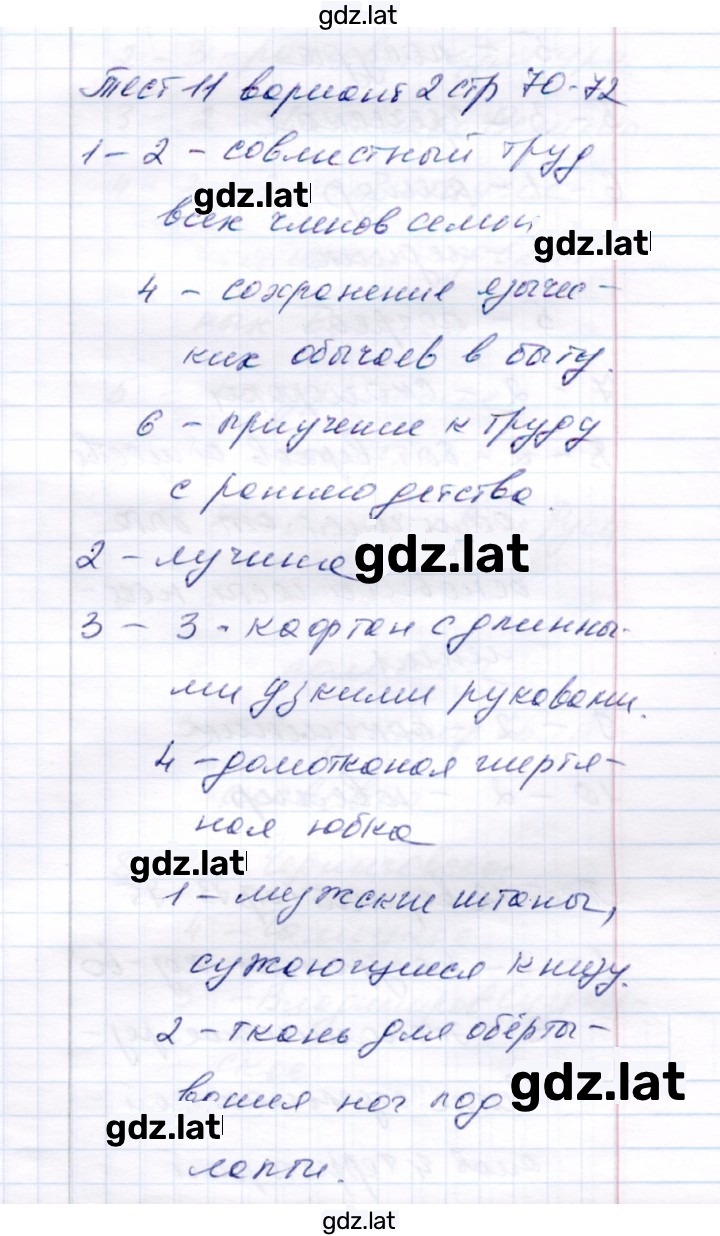 gdz.lat
Тест 11 вариант 2 стр 70-72
1 - 2 - совместный труд
gdz.lat
всех членов семьи
gdz.lat
4 - сохранение язычес-
ких обычаев в быту.
6 - приучение к труду
с раннего детства.
2 - лучина
gdz.lat
3 - 3 - кафтан с длинны-
ми узкими рукавами.
4 - домотканая шерстя-
ная юбка
gdz.lat
1 - мужские штаны,
сужающиеся книзу.
2 - ткань для обёрты-
gdz.lat
вания ног под
gdz.lat
лапти.
gdz.lat